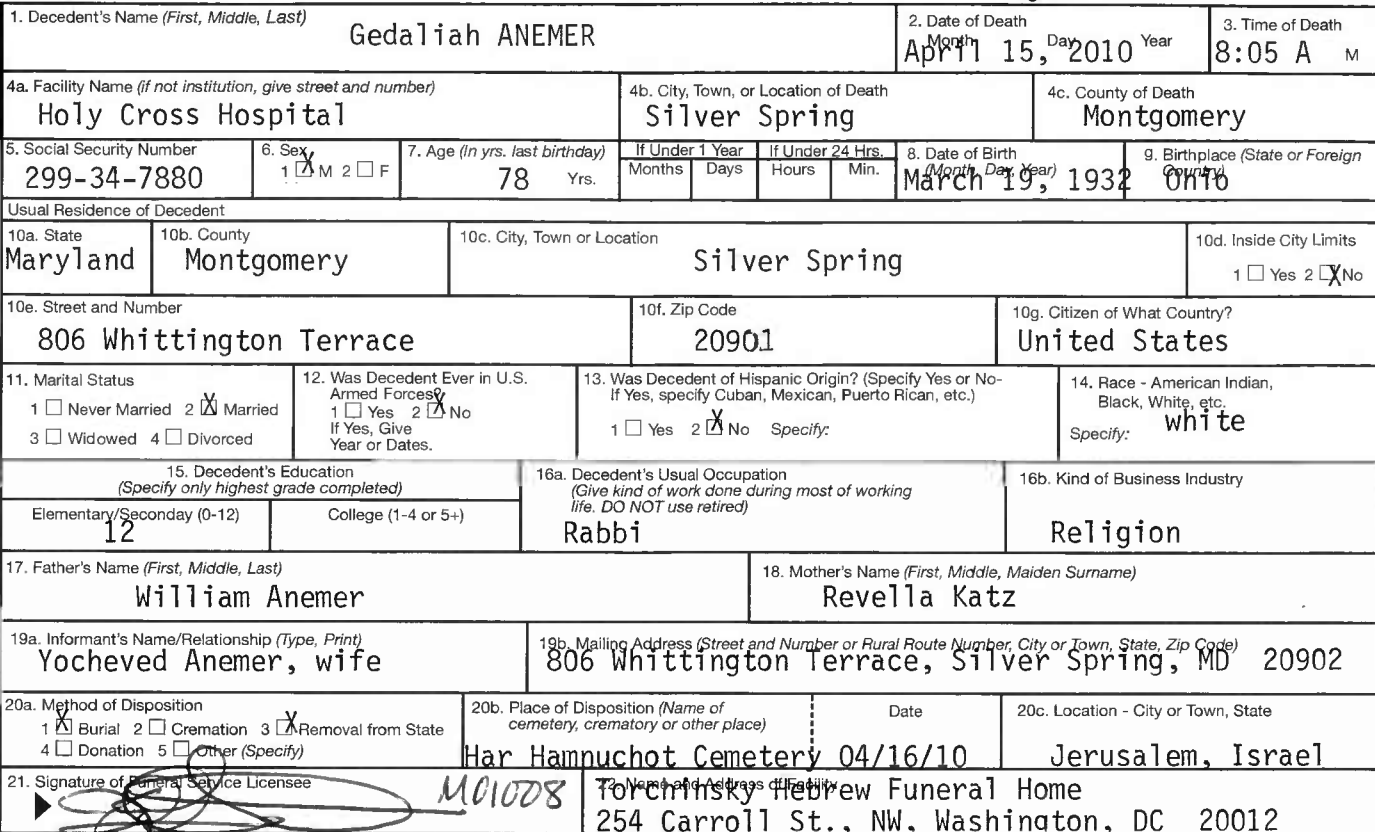 1. Decedent's Name (First, Middle, Last)
Gedaliah ANEMER
2. Date of Death
Month Day Year
April 15, 2010
3. Time of Death
8:05 A M
4a. Facility Name (if not institution, give street and number)
Holy Cross Hospital
4b. City, Town, or Location of Death
Silver Spring
4c. County of Death
Montgomery
5. Social Security Number
299-34-7880
6. Sex
1 X M 2 ☐ F
7. Age (In yrs. last birthday)
78 Yrs.
If Under 1 Year
Months Days
If Under 24 Hrs.
Hours Min.
8. Date of Birth
(Month, Day, Year)
March 19, 1932
9. Birthplace (State or Foreign
Country)
Ohio
Usual Residence of Decedent
10a. State
Maryland
10b. County
Montgomery
10c. City, Town or Location
Silver Spring
10d. Inside City Limits
1 ☐ Yes 2 X No
10e. Street and Number
806 Whittington Terrace
10f. Zip Code
20901
10g. Citizen of What Country?
United States
11. Marital Status
1 ☐ Never Married 2 X Married
3 ☐ Widowed 4 ☐ Divorced
12. Was Decedent Ever in U.S.
Armed Forces?
1 ☐ Yes 2 X No
If Yes, Give
Year or Dates.
13. Was Decedent of Hispanic Origin? (Specify Yes or No-
If Yes, specify Cuban, Mexican, Puerto Rican, etc.)
1 ☐ Yes 2 X No Specify:
14. Race - American Indian,
Black, White, etc.
Specify: white
15. Decedent's Education
(Specify only highest grade completed)
Elementary/Seconday (0-12)
12
College (1-4 or 5+)
16a. Decedent's Usual Occupation
(Give kind of work done during most of working
life. DO NOT use retired)
Rabbi
16b. Kind of Business Industry
Religion
17. Father's Name (First, Middle, Last)
William Anemer
18. Mother's Name (First, Middle, Maiden Surname)
Revella Katz
19a. Informant's Name/Relationship (Type, Print)
Yocheved Anemer, wife
19b. Mailing Address (Street and Number or Rural Route Number, City or Town, State, Zip Code)
806 Whittington Terrace, Silver Spring, MD 20902
20a. Method of Disposition
1 X Burial 2 ☐ Cremation 3 X Removal from State
4 ☐ Donation 5 ☐ Other (Specify)
20b. Place of Disposition (Name of
cemetery, crematory or other place)
Har Hamnuchot Cemetery
Date
04/16/10
20c. Location - City or Town, State
Jerusalem, Israel
21. Signature of Funeral Service Licensee
M01008
22. Name and Address of Facility
Torchinsky Hebrew Funeral Home
254 Carroll St., NW, Washington, DC 20012